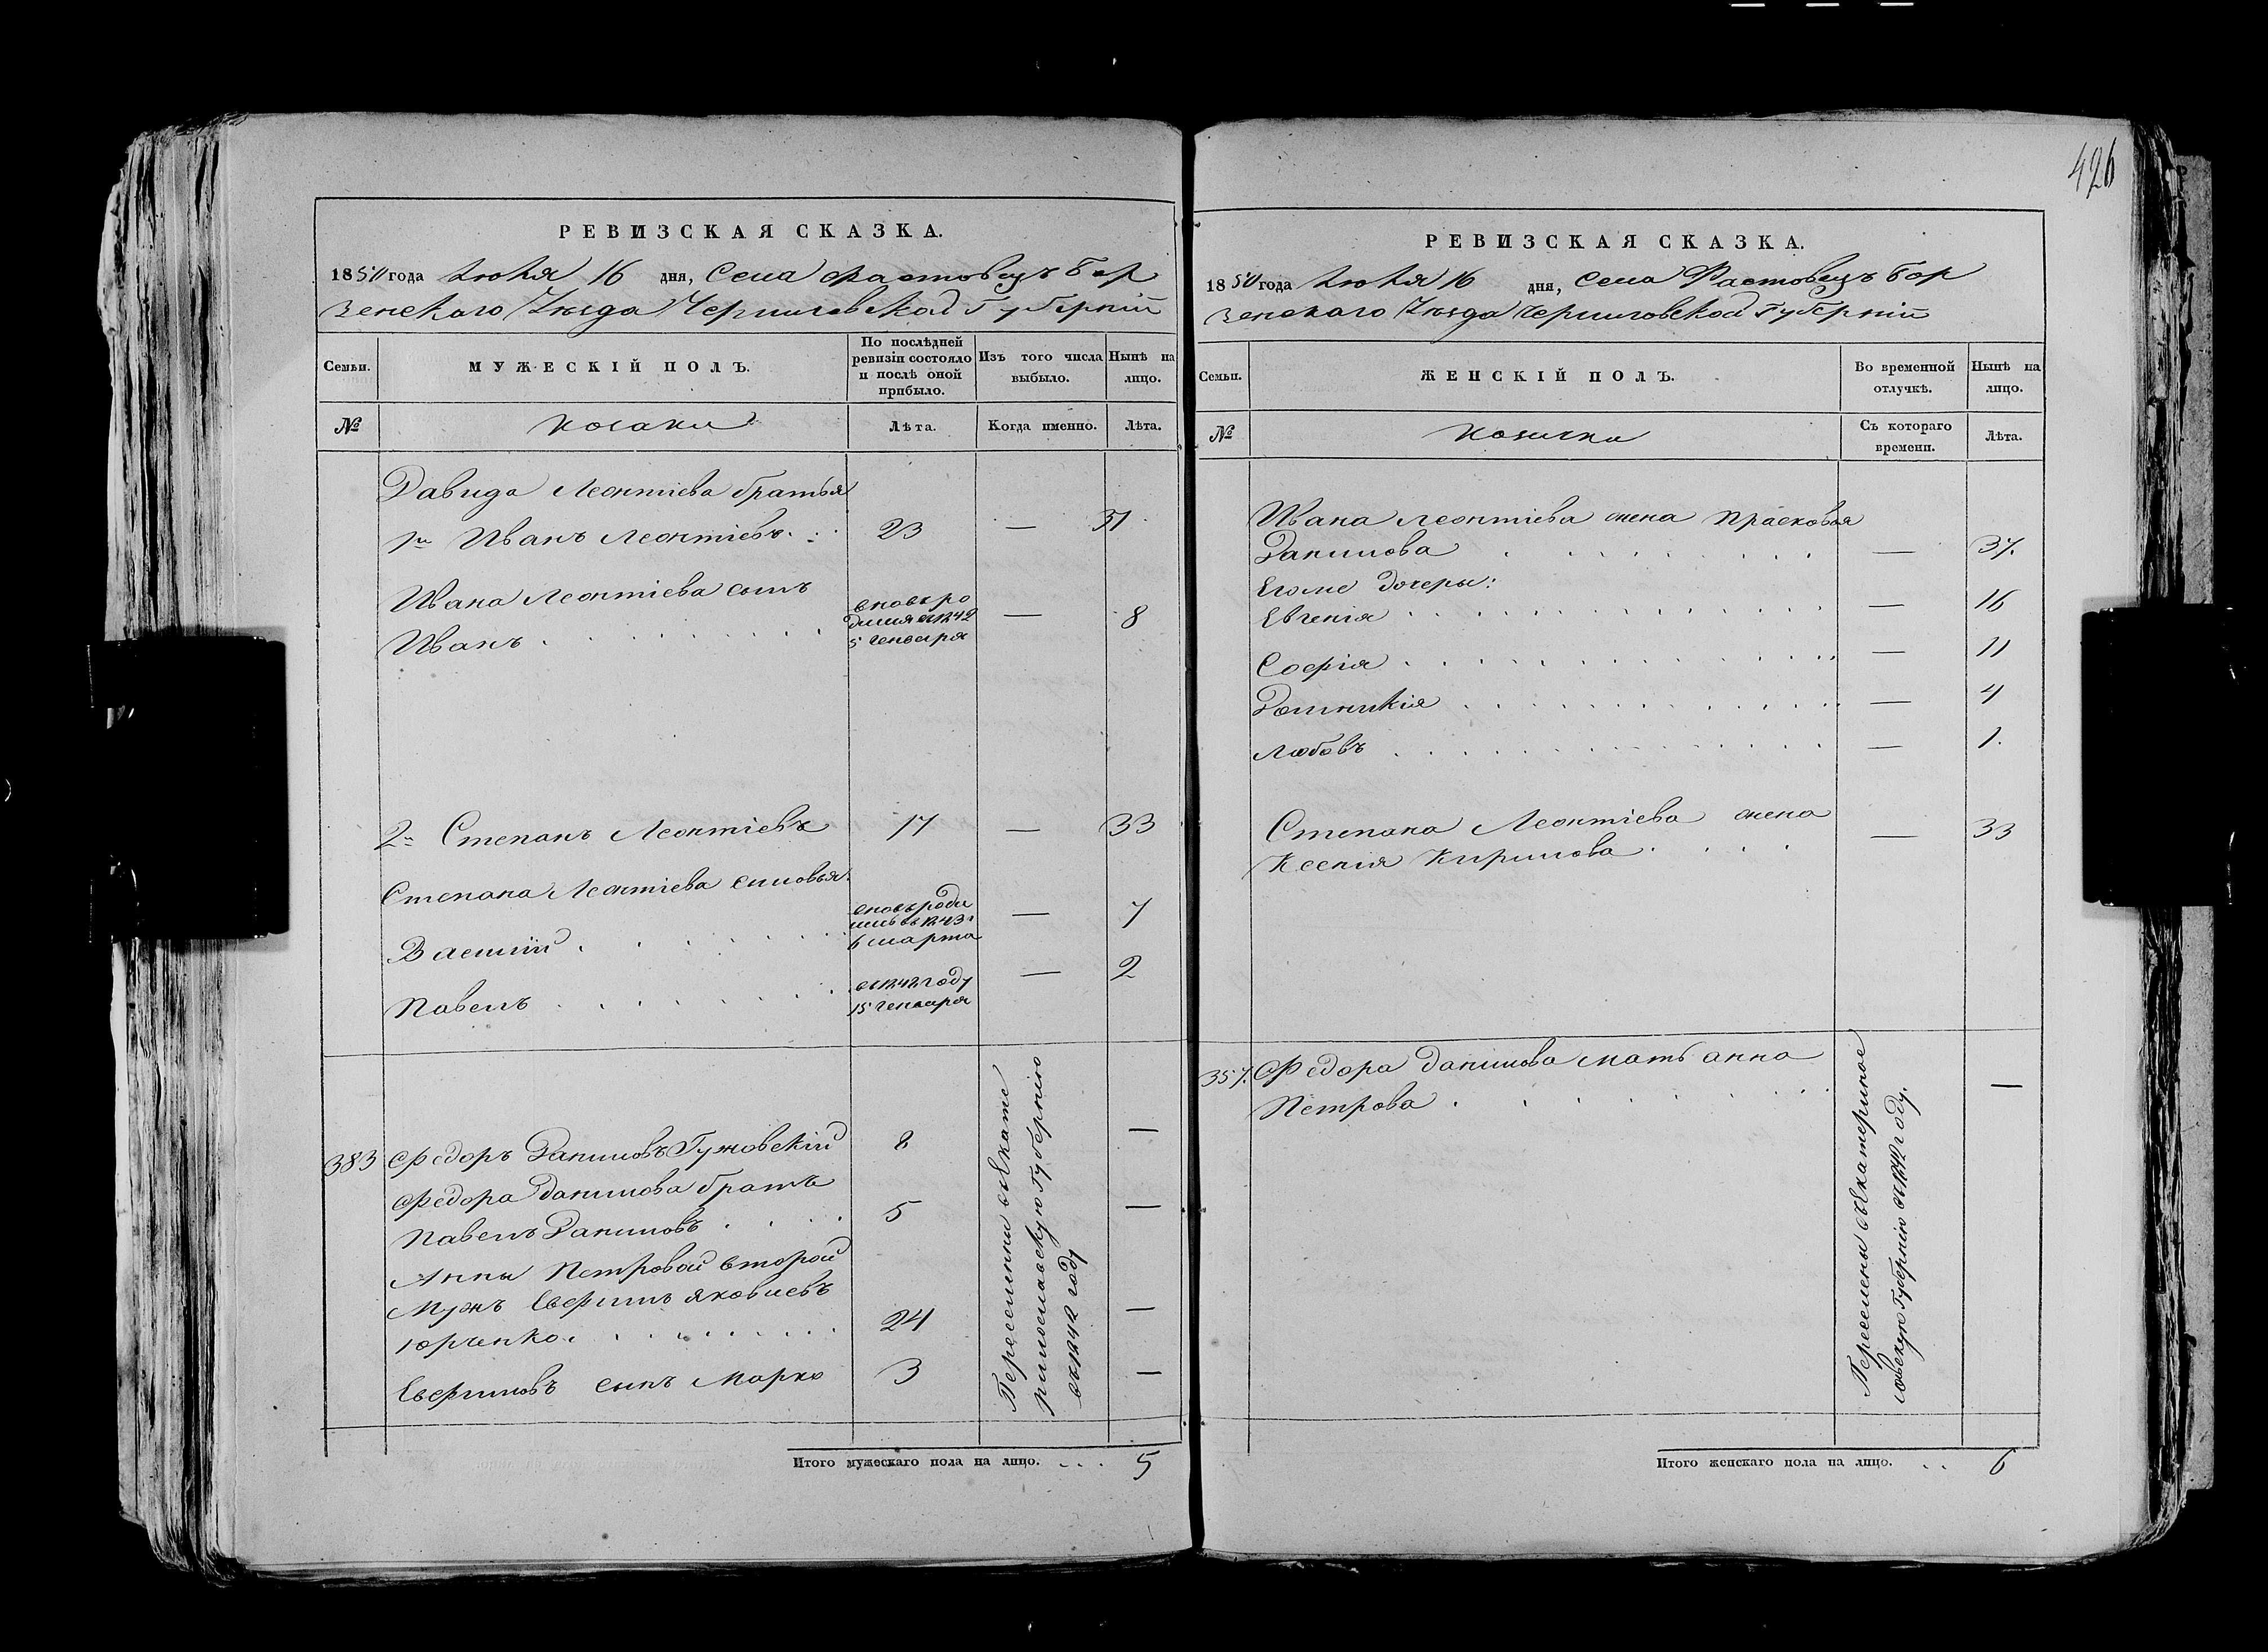 426
РЕВИЗСКАЯ СКАЗКА.
1850 года Июня 16 дня, Села Фастовецъ Бор
зенскаго Уѣзда Черниговской Губерніи
Семьи. МУЖЕСКІЙ ПОЛЪ. По послѣдней ревизіи состояло и послѣ оной прибыло. Изъ того числа выбыло. Нынѣ на лицо.
№ Козаки Лѣта. Когда именно. Лѣта.
Давида Леонтіева братья
1й Иванъ Леонтіевъ 23 — 31
Ивана Леонтіева сынъ
Иванъ вновь ро — 8
дился въ 1842
5 Генваря
2й Степанъ Леонтіевъ 17 — 33
Степана Леонтіева сыновья
Василій вновь роди — 7
лись въ 1843
6 марта
Павелъ году — 2
15 Генваря
383 Федоръ Даниловъ Гужовскій 8 —
Федора Данилова братъ
Павелъ Даниловъ 5 —
Анны Петровой второй
мужъ Яковлевъ
Юрченко 24 —
сынъ Марко 3 —
Переселены въ Екате
ринославскую Губернію
въ 1842 году
Итого мужескаго пола на лицо. 5
РЕВИЗСКАЯ СКАЗКА.
1850 года Июня 16 дня, Села Фастовецъ Бор
зенскаго Уѣзда Черниговской Губерніи
Семьи. ЖЕНСКІЙ ПОЛЪ. Во временной отлучкѣ. Нынѣ на лицо.
№ Козачки Съ котораго времени. Лѣта.
Ивана Леонтіева жена Прасковья
Данилова — 37.
Егоже дочеры:
Евгенія — 16
Софія — 11
Домникія — 4
Любовъ — 1.
Степана Леонтіева жена
Ксенія Кирилова — 33
357. Федора Данилова мать Анна
Петрова —
Переселены въ Екатеринос
лавскую Губернію въ 1842 году.
Итого женскаго пола на лицо. 6